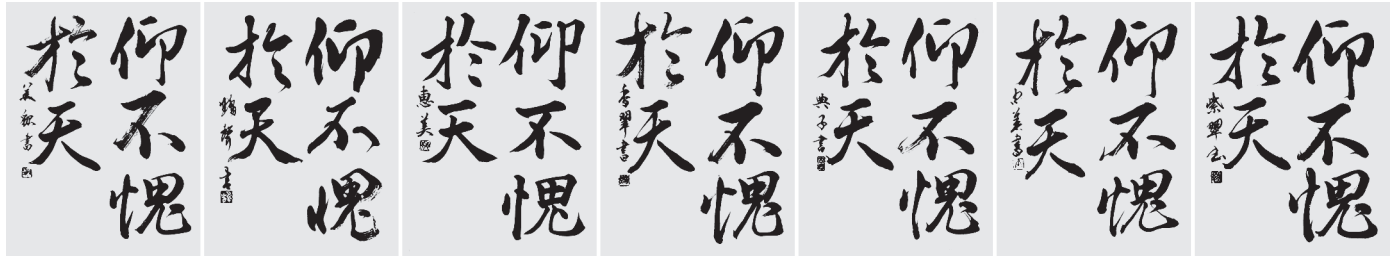 仰不愧
於天
仰不愧
於天
仰不愧
於天
惠美
仰不愧
於天
香翠書
仰不愧
於天
典子書
仰不愧
於天
仰不愧
於天
紫翠書